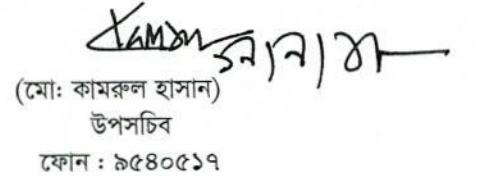 (মোঃ কামরুল হাসান)
উপসচিব
ফোন : ৯৫৪০৫১৭